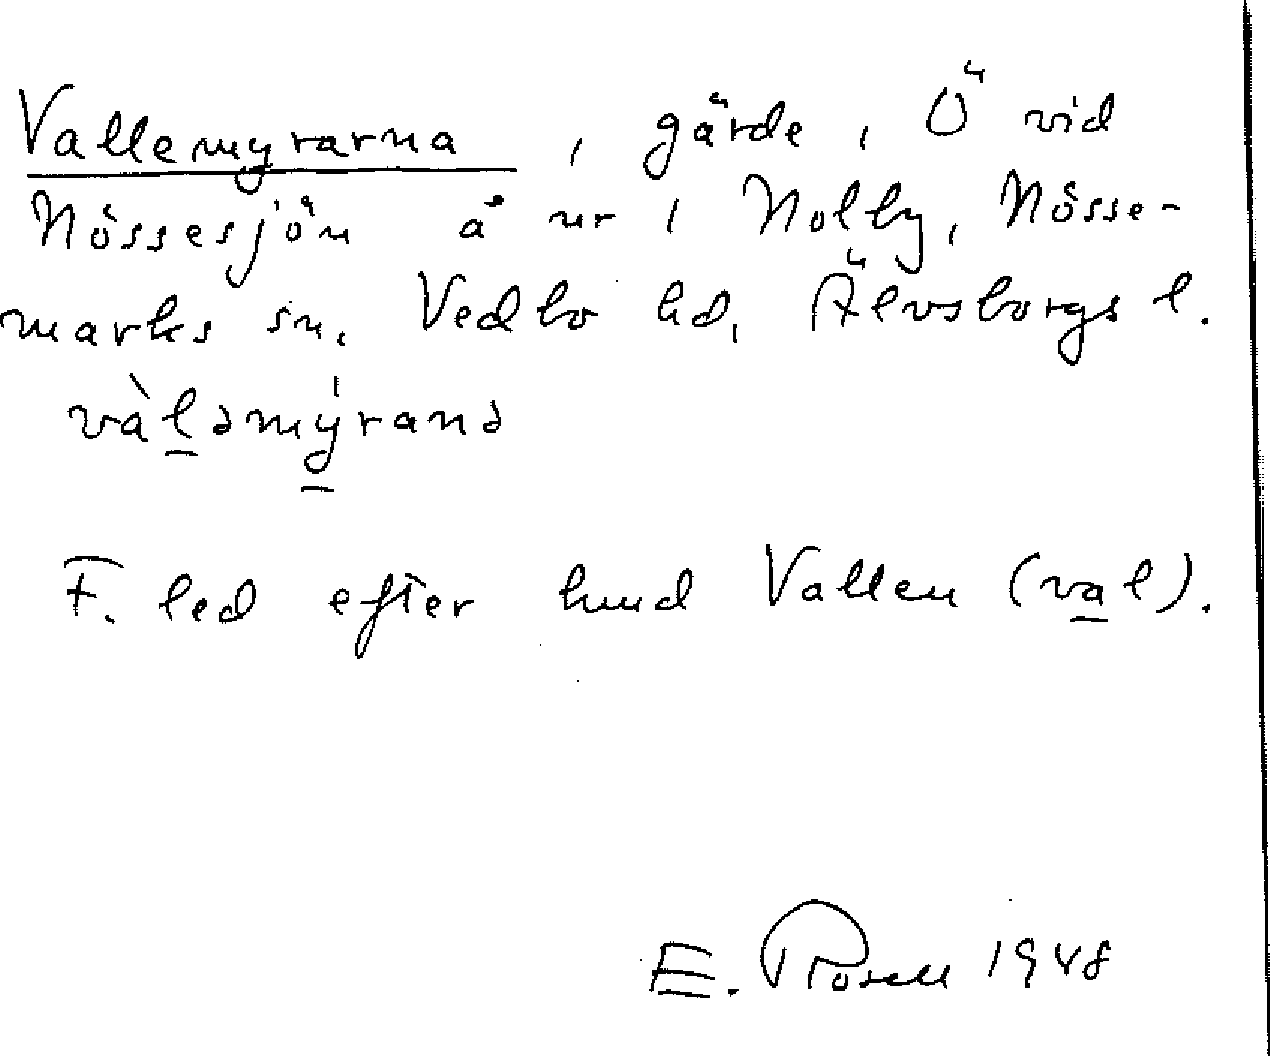 Vallemyrarna, gärde, Ö vid
Nössesjön å nr 1 Nolby, Nösse-
marks sn. Vedbo hd, Älvsborgs l.
vàləmýranə
F. led efter hmd Vallen (val).
E. Rosell 1948